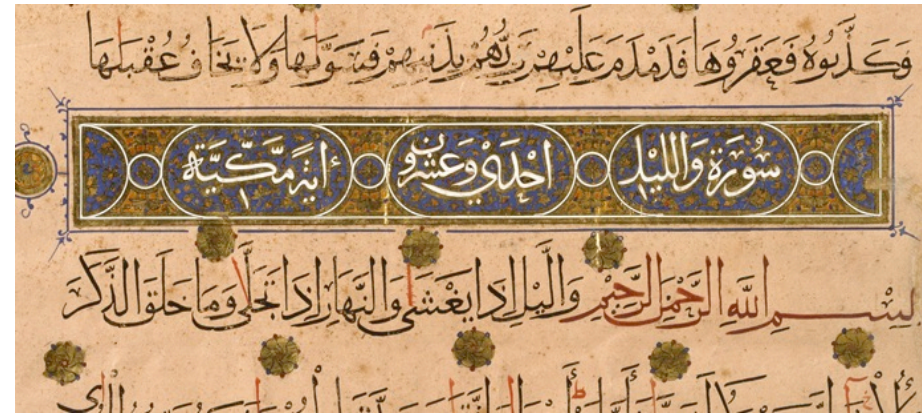 فَكَذَّبُوهُ فَعَقَرُوهَا فَدَمْدَمَ عَلَيْهِمْ رَبُّهُمْ بِذَنْبِهِمْ فَسَوَّىٰهَا وَلَا يَخَافُ عُقْبَىٰهَا
سُورَةُ وَاللَّيْلِ احْدَيْ وَعِشْرُونَ اٰيَةً مَكِّيَّةٌ
بِسْمِ اللَّهِ الرَّحْمٰنِ الرَّحِيْمِ وَالَّيْلِ اِذَا يَغْشَى وَالنَّهَارِ اِذَا تَجَلَّى وَمَا خَلَقَ الذَّكَرَ